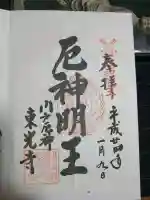 奉拝
平成廿四年
一月九日
厄神明王
東光寺